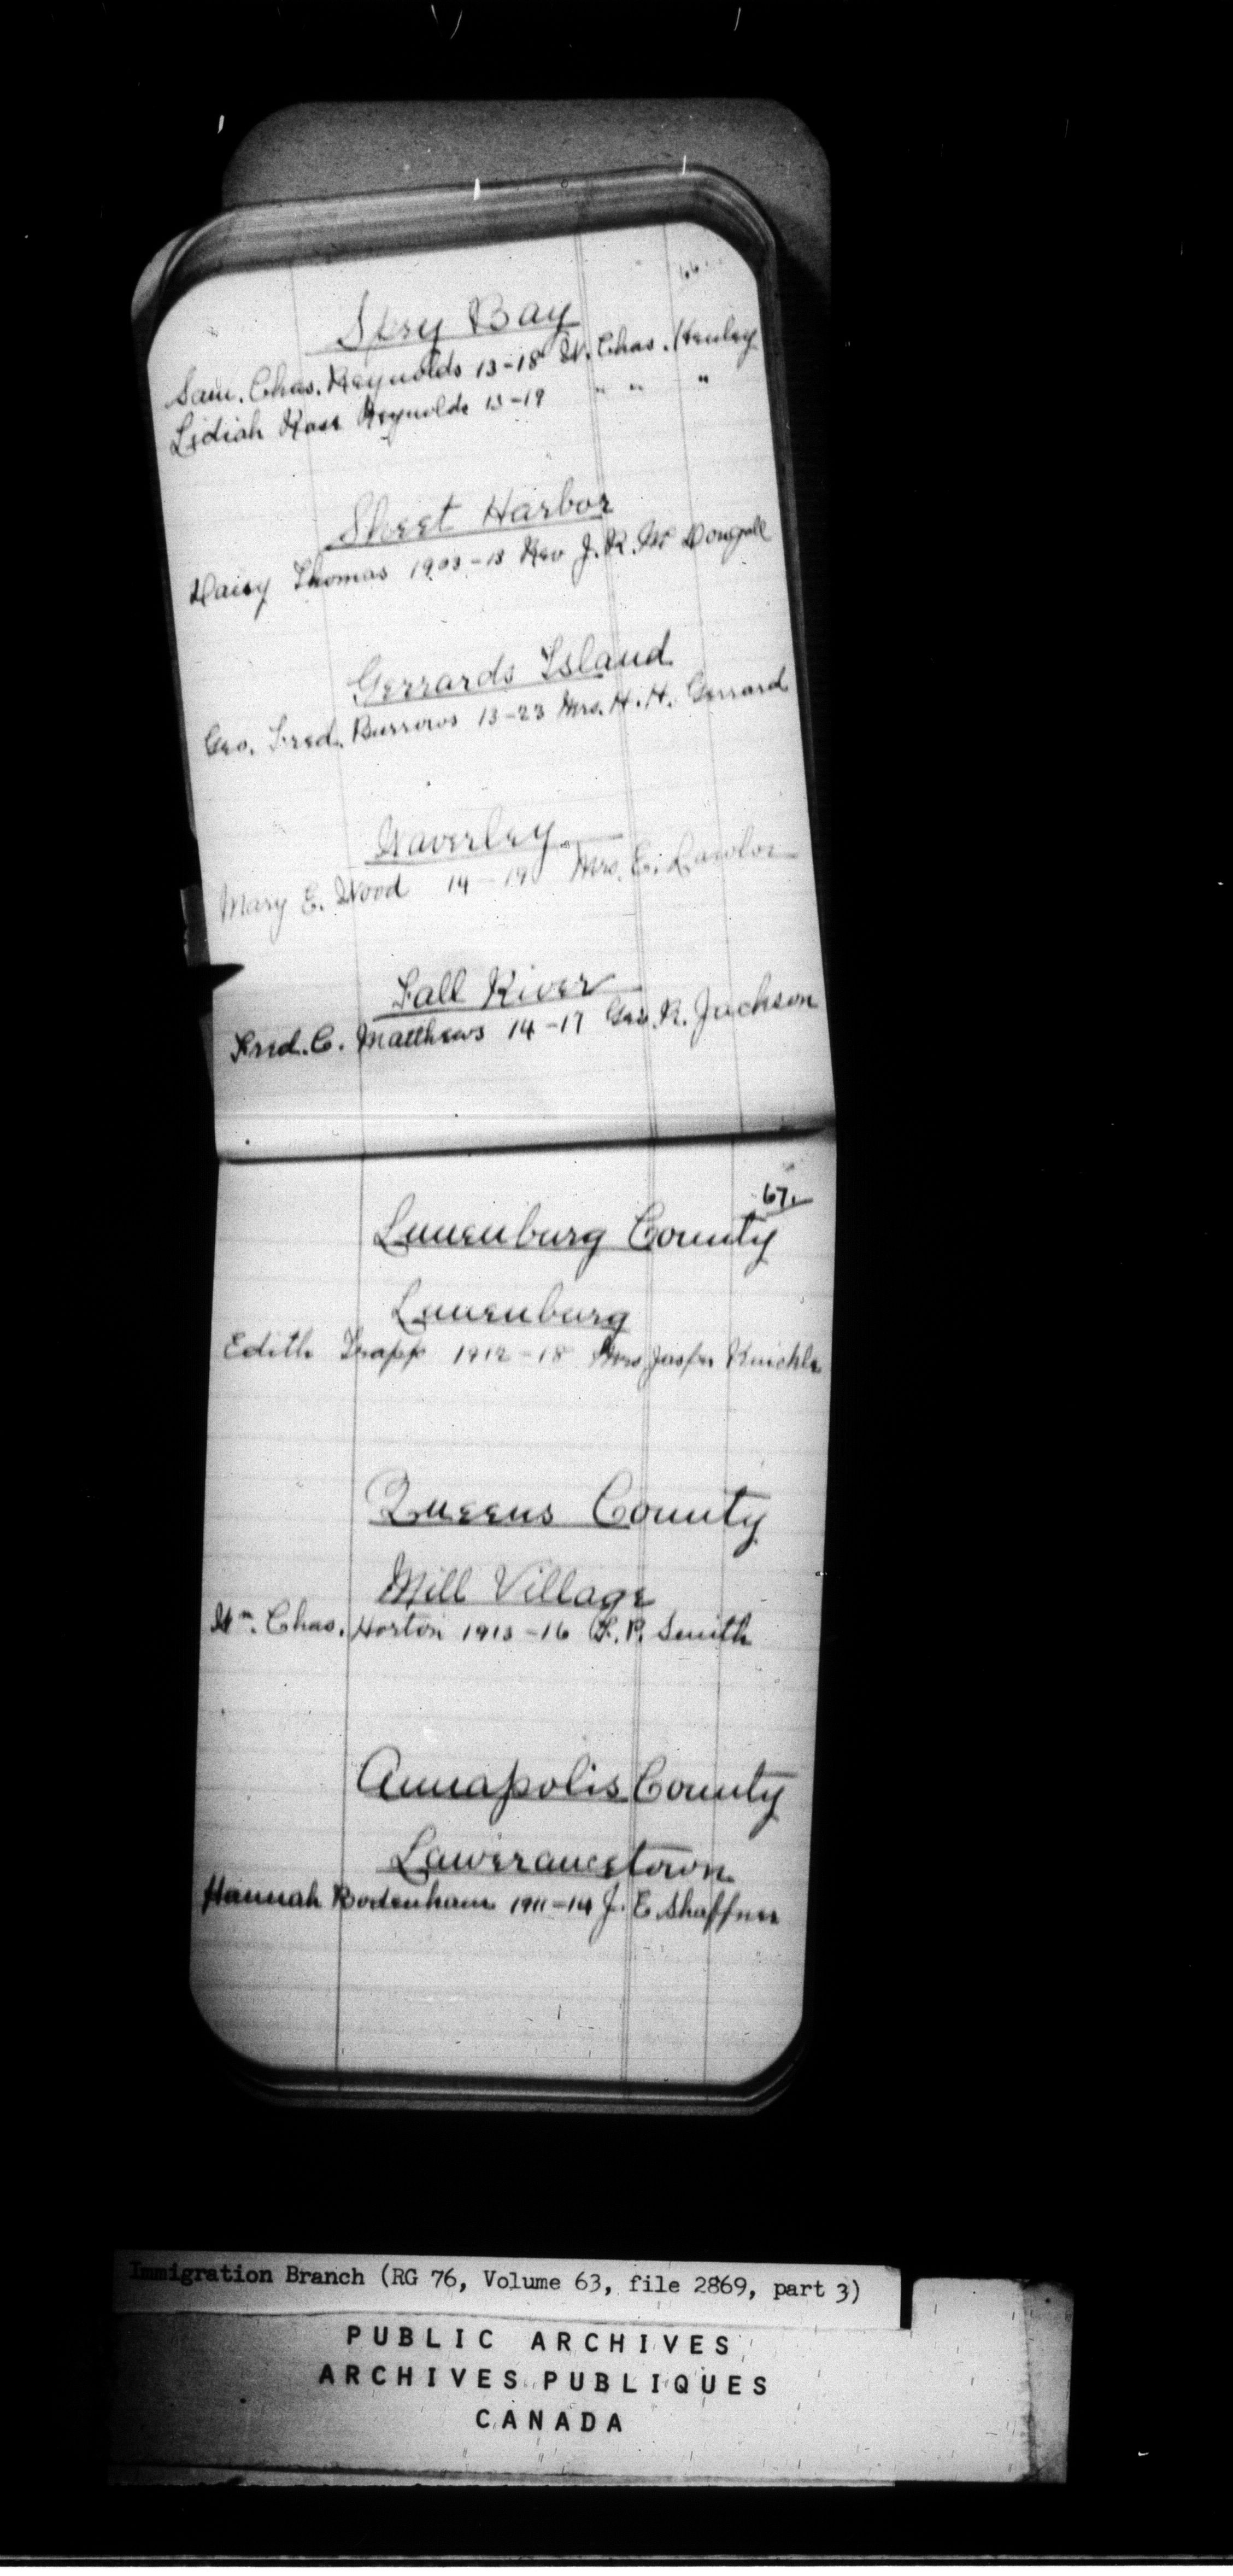 66.
Spry Bay
Sam. Chas. Reynolds 13-18 W. Chas. Henley
Lidiah Rose Reynolds 13-19 " " "
Sheet Harbor
Daisy Thomas 1908-18 Rev J. R. Mc Dougall
Gerrards Island
Geo. Fred. Burrows 13-23 Mrs. H. H. Gerrard
Waverley
Mary E. Wood 14-19 Mrs. E. Lawlor
Fall River
Fred. C. Matthews 14-17 Geo. R. Jackson
67.
Lunenburg County
Lunenburg
Edith Trapp 1912-18 Mrs Jasper
Queens County
Mill Village
Wm. Chas. Horton 1913-16 F. P. Smith
Annapolis County
Lawerancetown
Hannah Bodenham 1911-14 J. E. Shaffner
Immigration Branch (RG 76, Volume 63, file 2869, part 3)
PUBLIC ARCHIVES
ARCHIVES PUBLIQUES
CANADA